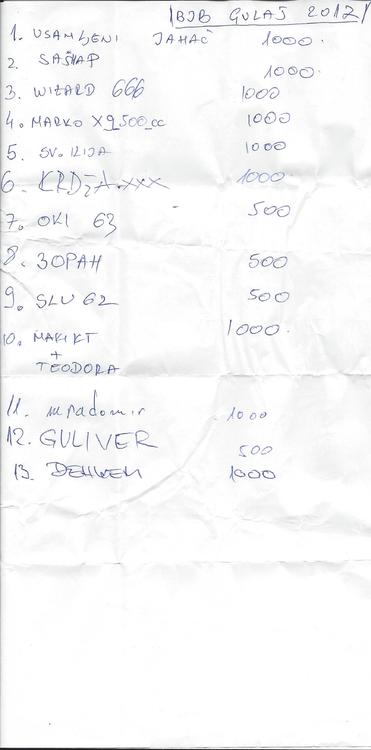 BJB GULAŠ 2017
1. USAMLJENI JAHAČ 1000.
2. SAŠKAP 1000.
3. WIZARD 666 1000
4. MARKO X9_500_cc 1000
5. SV. ILIJA 1000
6. KRDŽA.xxx 1000
7. OKI 63 500
8. ЗОРАН 500
9. SLU 62 500
10. MAKI KT 1000.
+
TEODORA
11. mradomir 1000
12. GULIVER 500
13. 1000